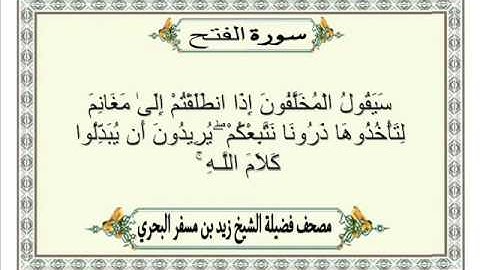 سورة الفتح
سَيَقُولُ الْمُخَلَّفُونَ إِذَا انطَلَقْتُمْ إِلَىٰ مَغَانِمَ
لِتَأْخُذُوهَا ذَرُونَا نَتَّبِعْكُمْ ۖ يُرِيدُونَ أَن يُبَدِّلُوا
كَلَامَ اللَّهِ ۚ
مصحف فضيلة الشيخ زيد بن مسفر البحري